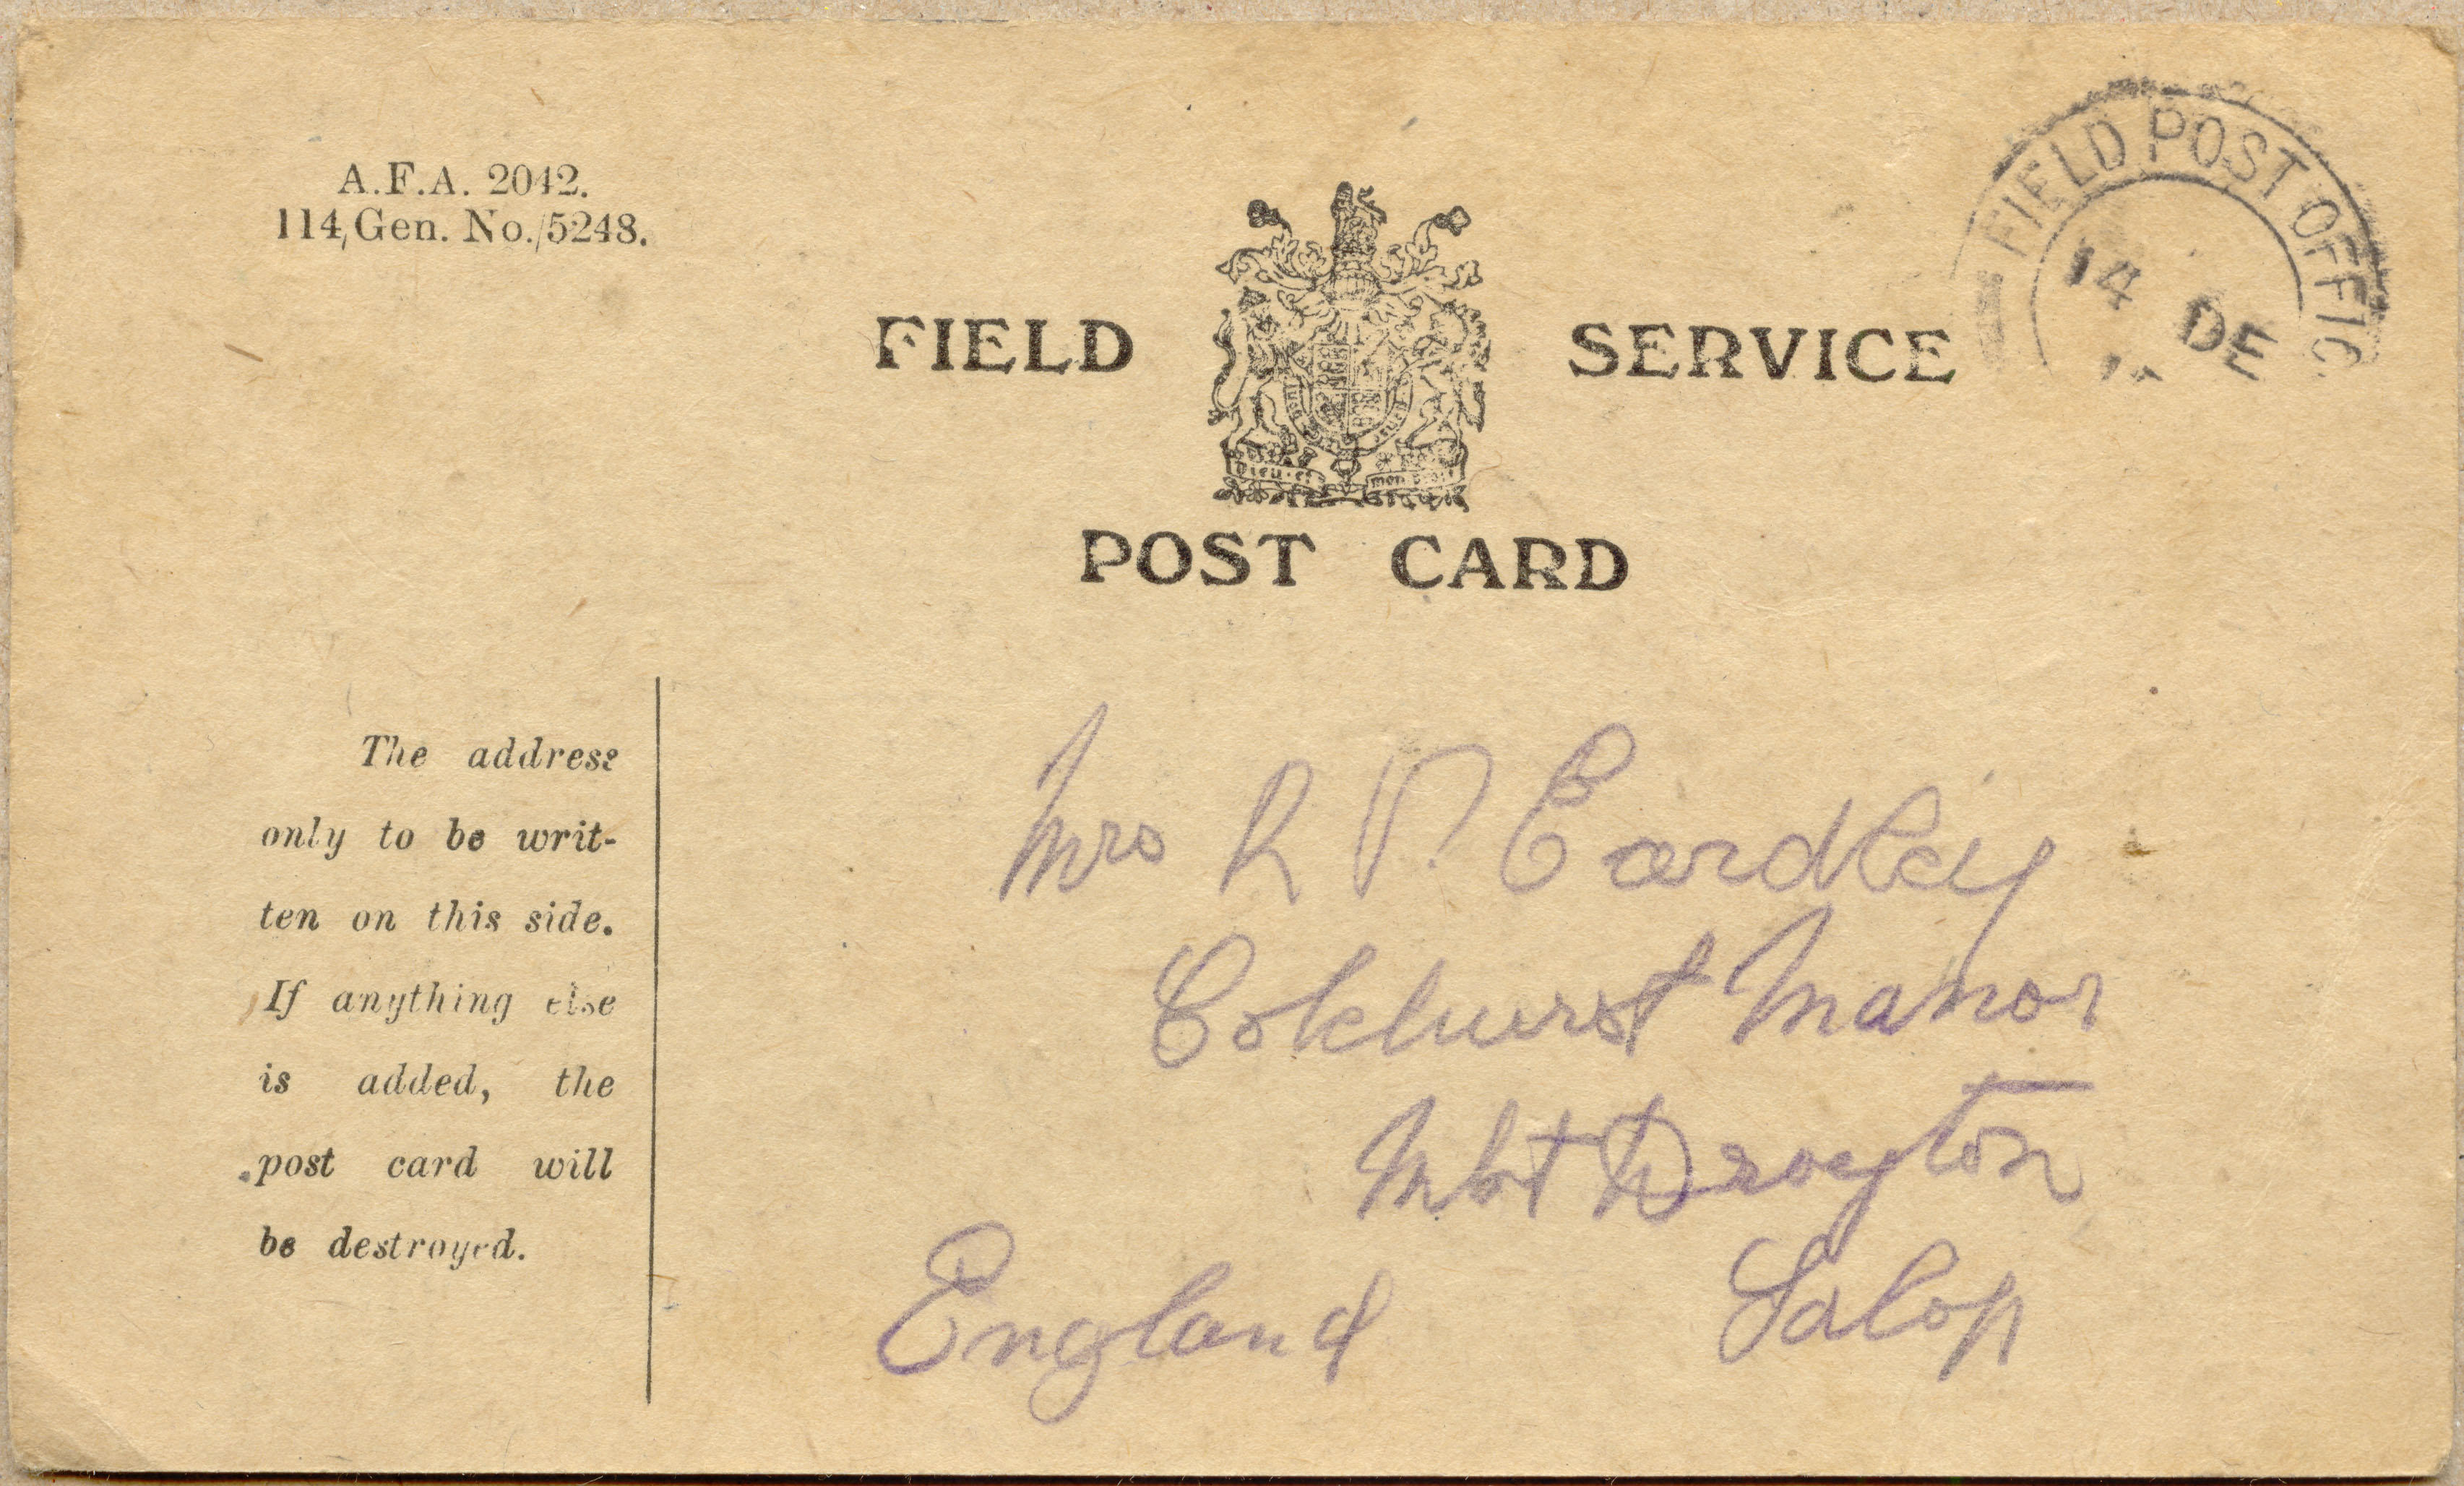 A.F.A. 2042.
114/Gen. No./5248.
FIELD POST OFFIC
14 DE
FIELD SERVICE
Dieu et mon
POST CARD
The address
only to be writ-
ten on this side.
If anything else
is added, the
post card will
be destroyed.
Mrs R P. Eardley
Colehurst Manor
Mkt Drayton
Salop
England